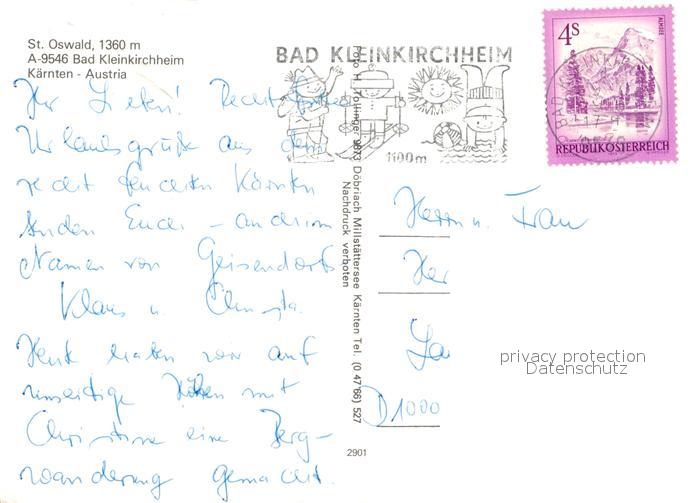 St. Oswald, 1360 m
A-9546 Bad Kleinkirchheim
Kärnten - Austria
Ihr Lieben! Recht
Urlaubsgrüße aus dem
recht feuchten Kärnten
senden Euch - auch im
Namen von Geisendorfs
Klaus u. Christa.
Heute haben wir auf
hiesigen Höhen mit
Christine eine Berg-
wanderung gemacht.
BAD KLEINKIRCHHEIM
1100m
4S
ALMSEE
REPUBLIK ÖSTERREICH
Foto H. Tollinger 9873 Döbriach Millstättersee Kärnten Tel. (0 47 66) 527
Nachdruck verboten
Herrn u. Frau
Her
La
D 1000
2901
privacy protection
Datenschutz